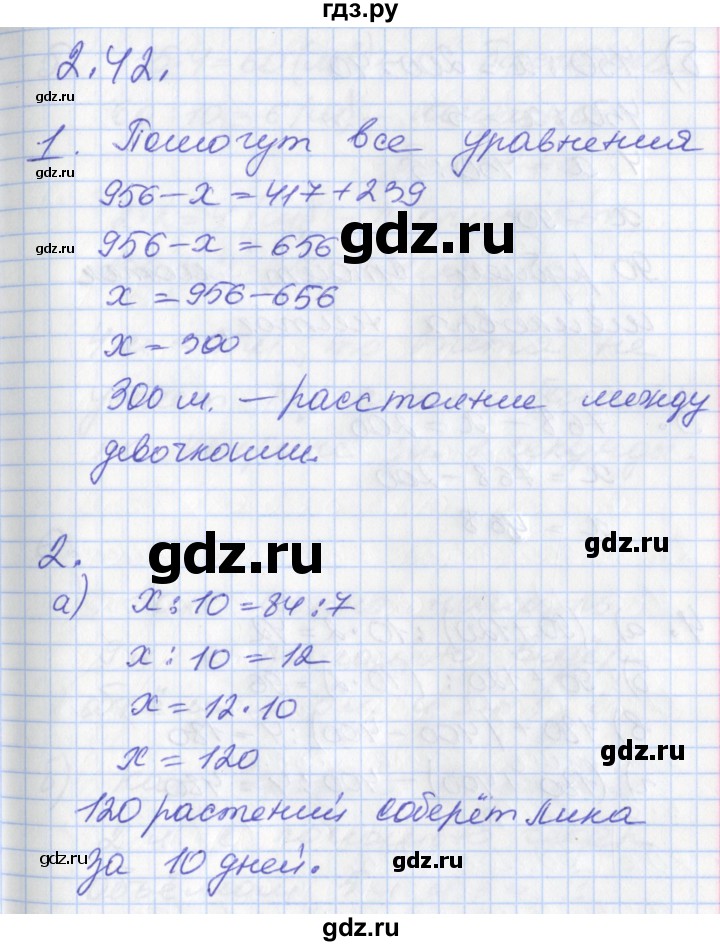 гдз.ру
2.42.
gdz.ru
1. Помогут все уравнения
gdz.ru
956-x=417+239
gdz.ru
956-x=656
gdz.ru
x=956-656
x=300
300 м. – расстояние между
девочками.
gdz.ru
2.
gdz.ru
а) x:10=84:7
gdz.ru
x:10=12
x=12·10
gdz.ru
x=120
120 растений соберёт Лика
gdz.ru
за 10 дней.
gdz.ru
gdz.ru
gdz.ru